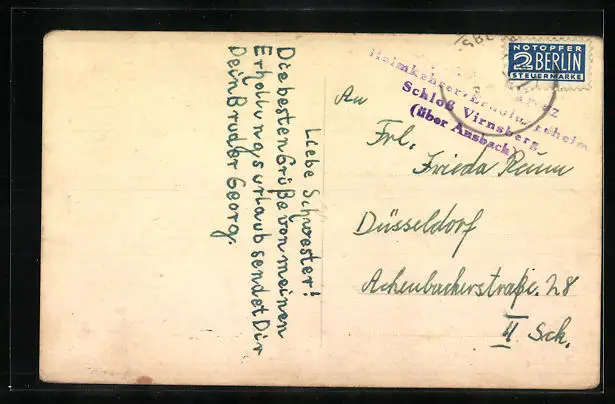 Liebe Schwester!
Die besten Grüße von meinen
Erholungsurlaub sendet Dir
Dein Bruder Georg.
NOTOPFER
2 BERLIN
STEUERMARKE
Heimkehrer-Erholungsheim
Schloß Virnsberg
(über Ansbach)
An
Frl.
Frieda
Düsseldorf
Achenbacherstraße. 28
II Sck.